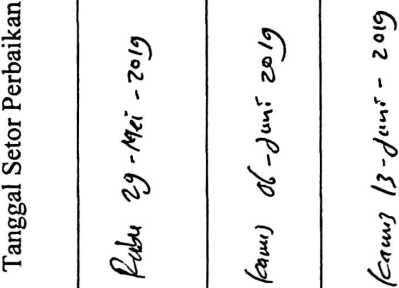 Tanggal Setor Perbaikan
Rabu 29-Mei-2019
Kamis 06-Juni 2019
Kamis 13-Juni-2019